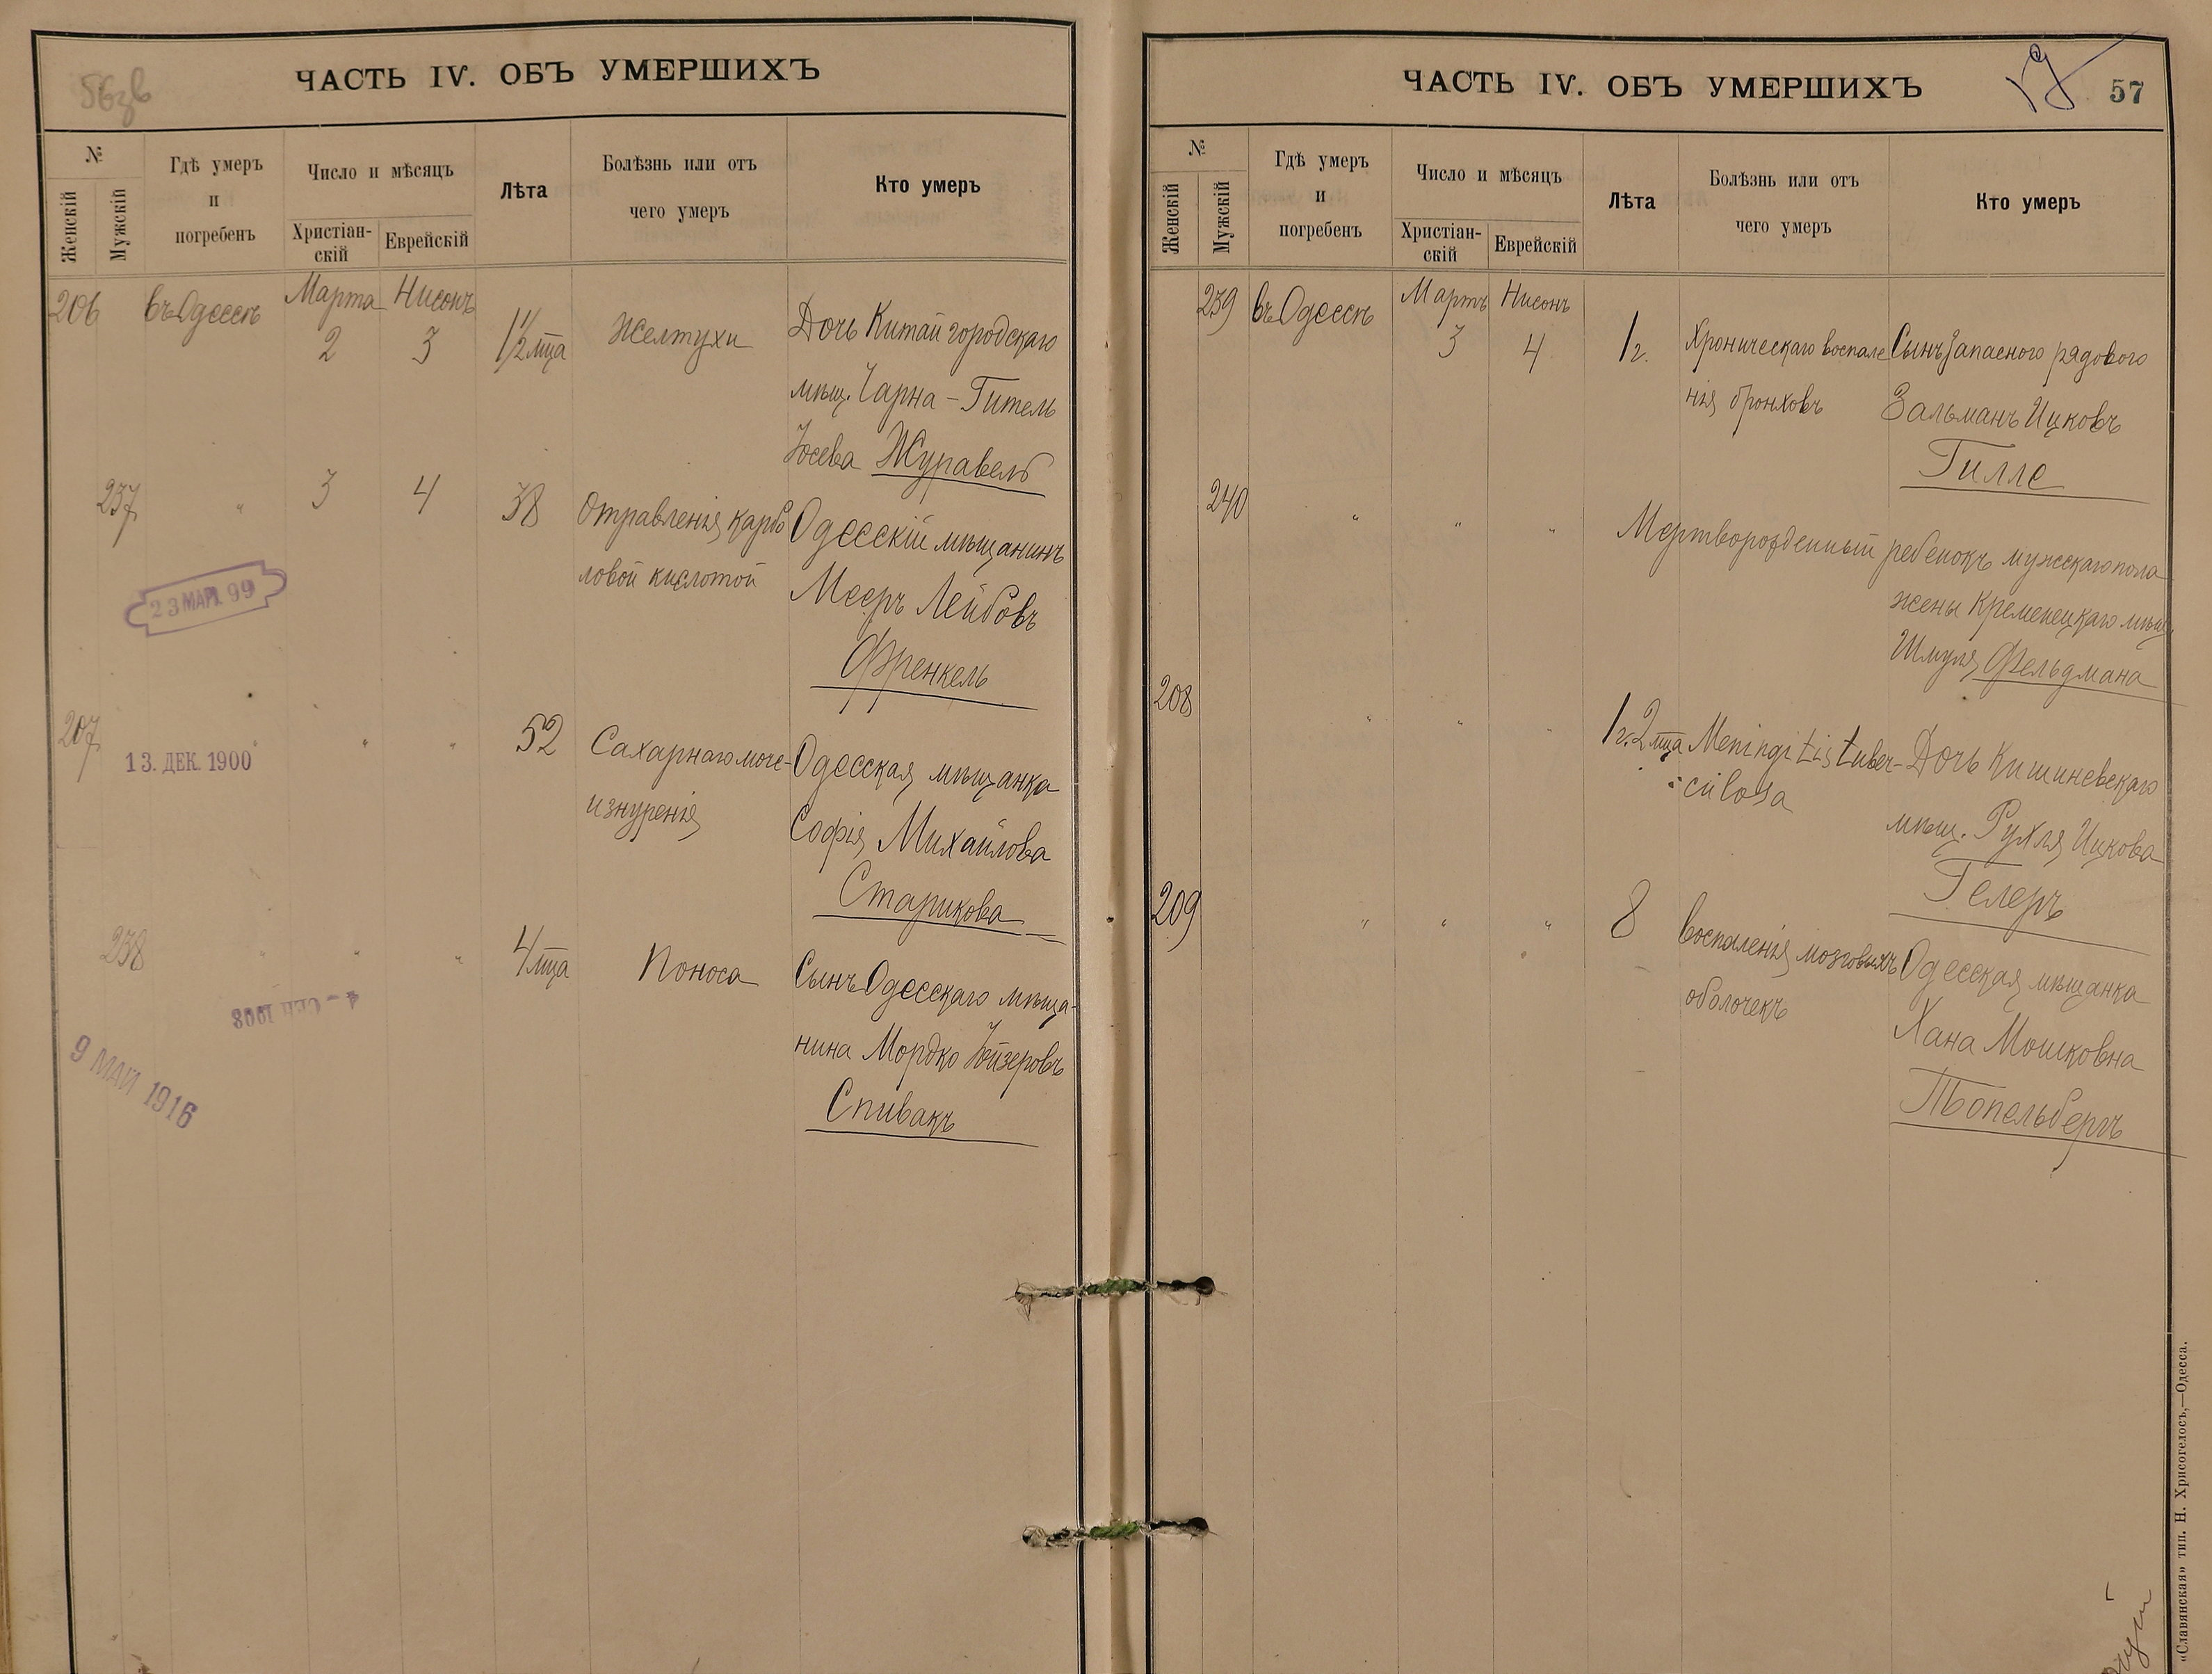 56зв
ЧАСТЬ IV. ОБЪ УМЕРШИХЪ
№
Женскій
Мужскій
Гдѣ умеръ
и
погребенъ
Число и мѣсяцъ
Христіан-
скій
Еврейскій
Лѣта
Болѣзнь или отъ
чего умеръ
Кто умеръ
206 въ Одессѣ Марта 2 Нисонъ 3 1½ мца Желтухи Дочь Китайгородскаго
мѣщ. Чарна-Гитель
Іосева Журавель
237 " 3 4 38 Отравленія карбо Одесскій мѣщанинъ
ловой кислотой Мееръ Лейбовъ
Френкель
23 МАР. 99
207 " " " 52 Сахарнаго моче- Одесская мѣщанка
изнуренія Софія Михайлова
Старикова
13. ДЕК. 1900
238 " " " 4 мца Поноса Сынъ Одесскаго мѣща-
нина Мордко Іойзеровъ
Спивакъ
4 - СЕН 1908
9 МАЙ 1916
ЧАСТЬ IV. ОБЪ УМЕРШИХЪ
57
№
Женскій
Мужскій
Гдѣ умеръ
и
погребенъ
Число и мѣсяцъ
Христіан-
скій
Еврейскій
Лѣта
Болѣзнь или отъ
чего умеръ
Кто умеръ
239 въ Одессѣ Мартъ 3 Нисонъ 4 1 г. Хроническаго воспале Сынъ запасного рядового
нія бронховъ Зальманъ Ицковъ
Гилле
240 " " " Мертворожденный ребенокъ мужскаго пола
жены Кременецкаго мѣщ
Шмуля Фельдмана
208 " " " 1 г. 2 мца Meningitis tuber- Дочь Кишиневскаго
culosa мѣщ. Рухля Ицкова
Гелеръ
209 " " " 8 воспаленія мозговыхъ Одесская мѣщанка
оболочекъ Хана Мошковна
Топельбергъ
«Славянская» тип. Н. Хрисогелосъ,—Одесса.